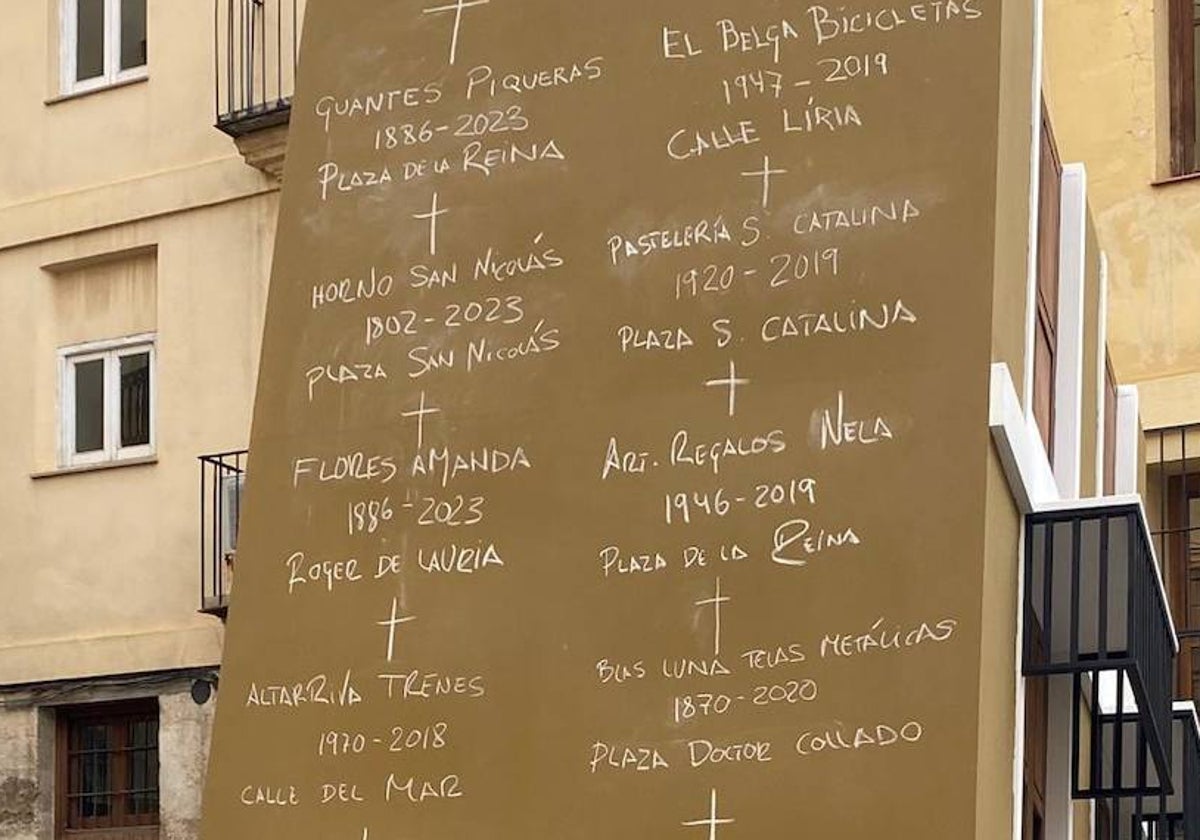 GUANTES PIQUERAS
1886-2023
PLAZA DE LA REINA
HORNO SAN NICOLÁS
1802-2023
PLAZA SAN NICOLÁS
FLORES AMANDA
1886-2023
ROGER DE LAURIA
ALTARRIVA TRENES
1970-2018
CALLE DEL MAR
EL BELGA BICICLETAS
1947-2019
CALLE LÍRIA
PASTELERÍA S. CATALINA
1920-2019
PLAZA S. CATALINA
ART. REGALOS NELA
1946-2019
PLAZA DE LA REINA
BLAS LUNA TELAS METÁLICAS
1870-2020
PLAZA DOCTOR COLLADO